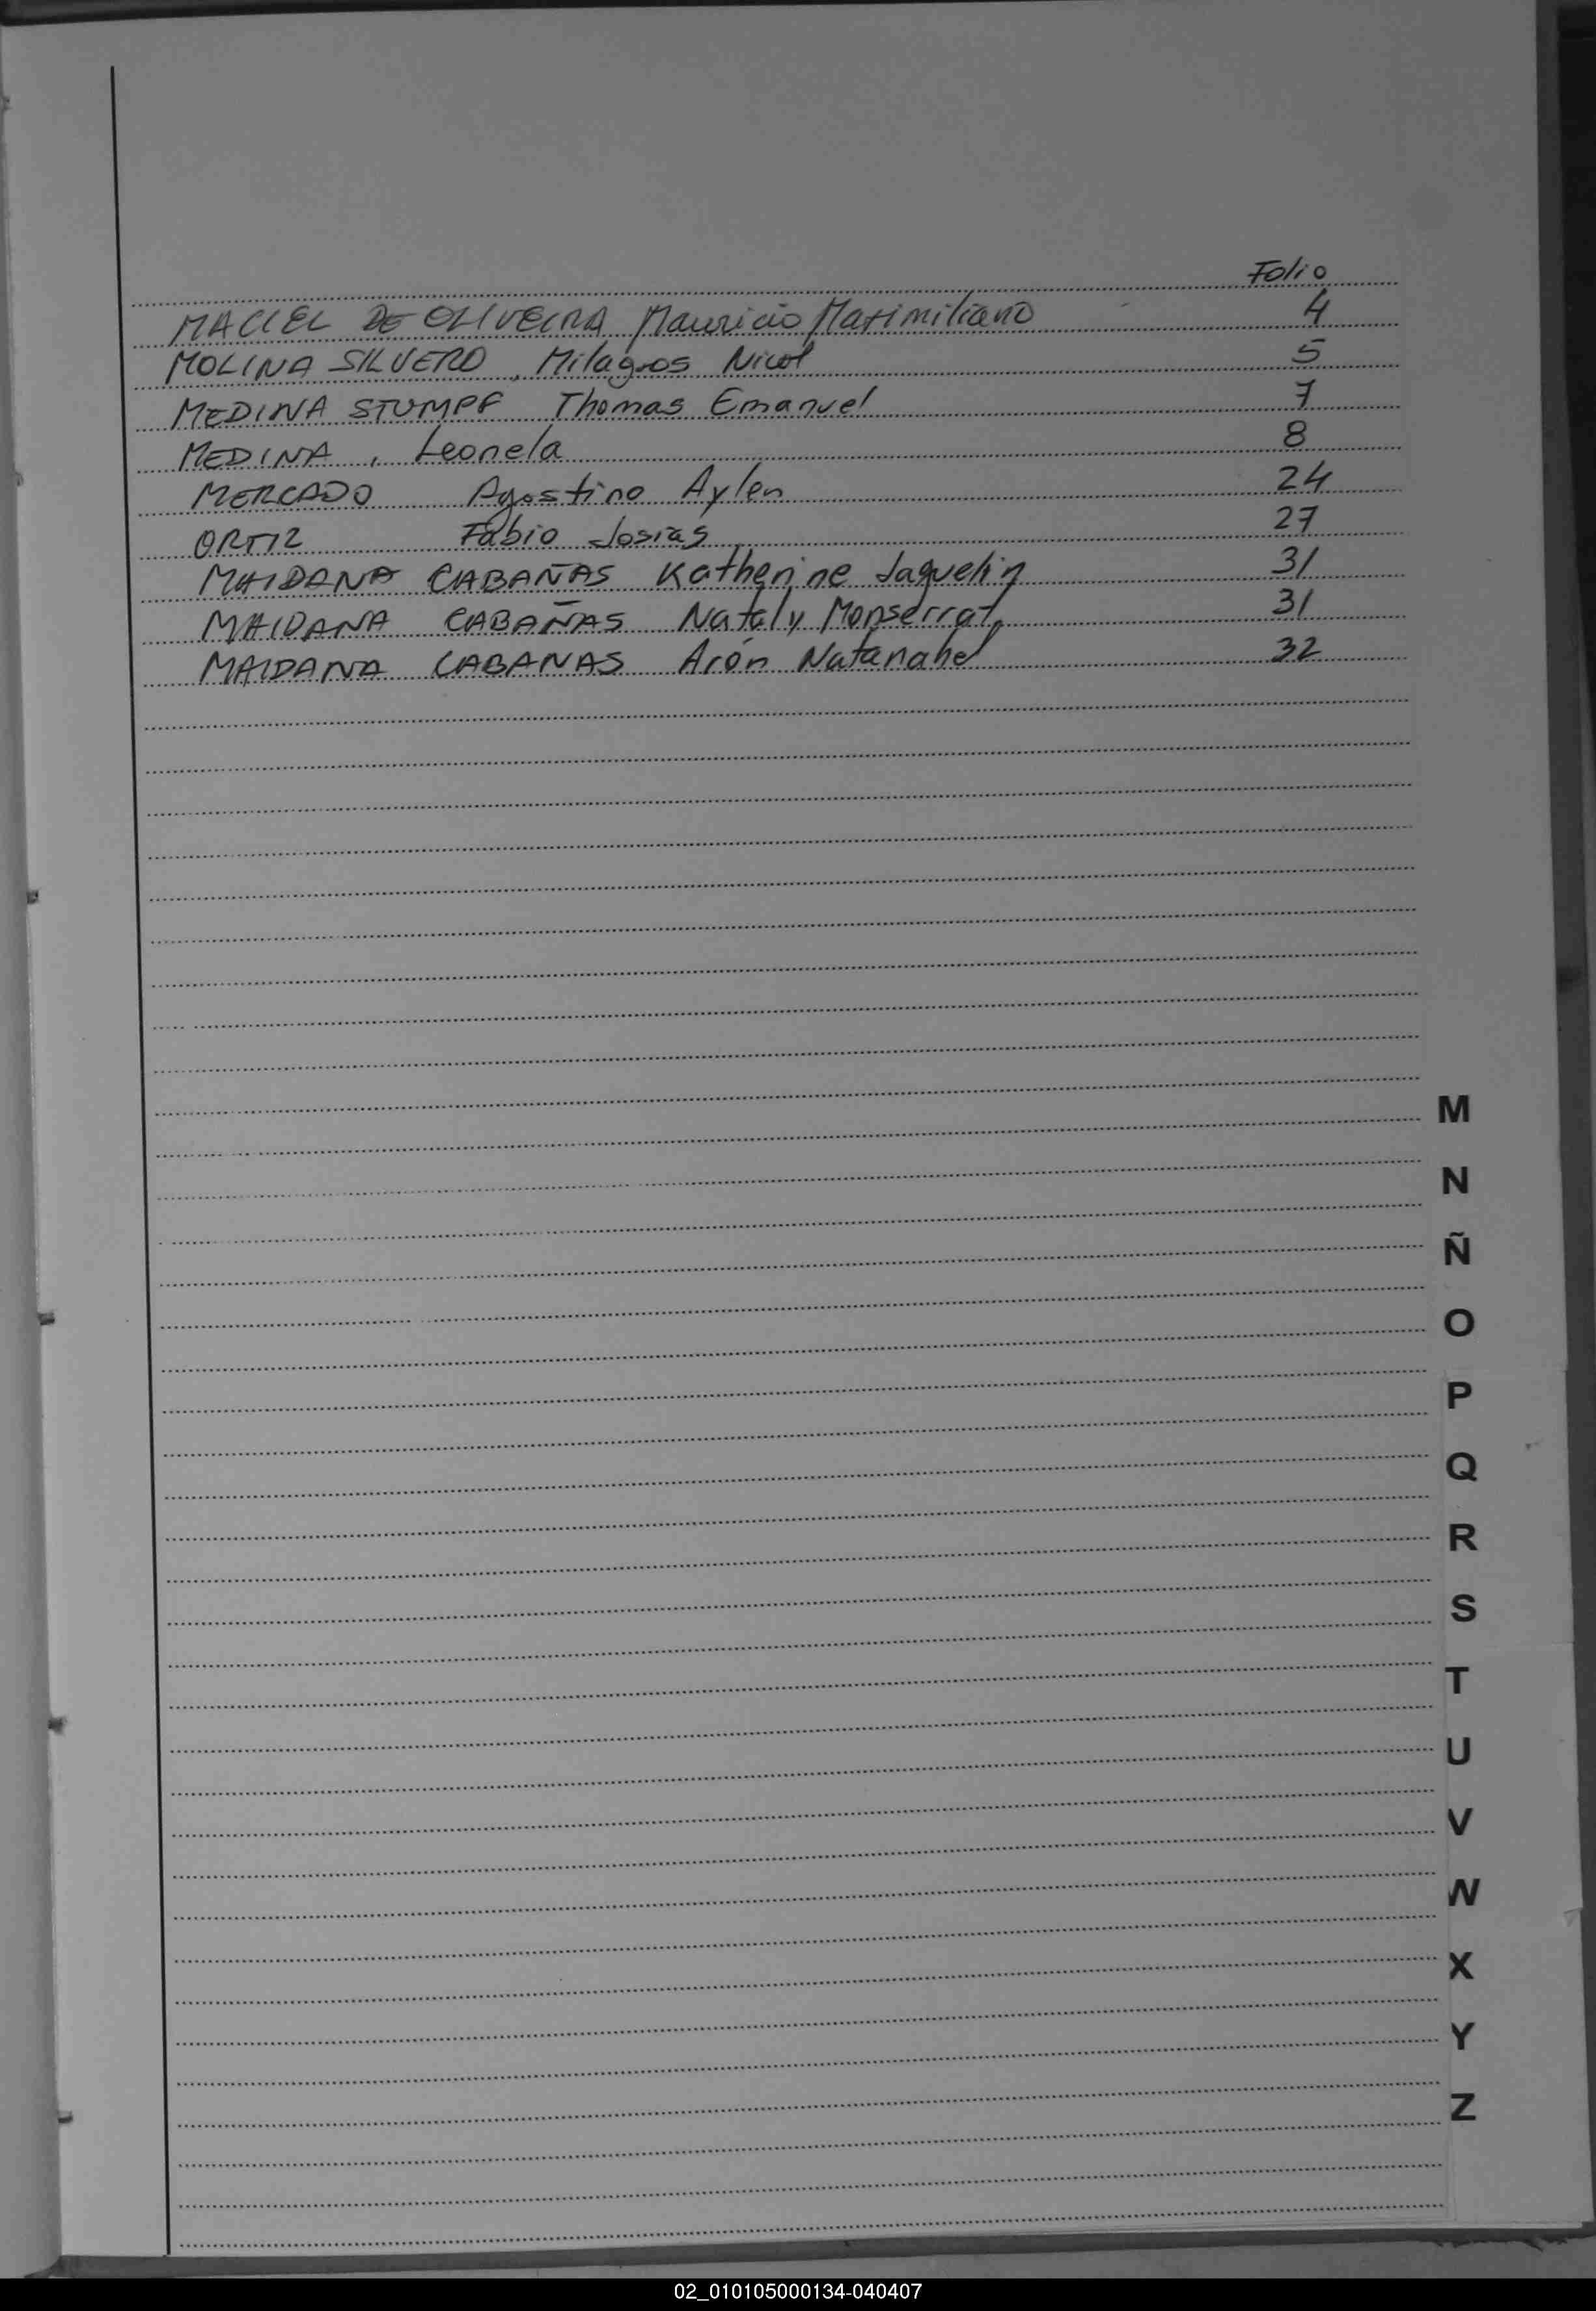 Folio
MACIEL DE OLIVEIRA Mauricio Maximiliano 4
MOLINA SILVERO, Milagros Nicol 5
MEDINA STUMPF Thomas Emanuel 7
MEDINA, Leonela 8
MERCADO Agostino Aylen 24
ORTIZ Fabio Josias 27
MAIDANA CABAÑAS Katherine Jaquelin 31
MAIDANA CABAÑAS Nataly Monserrat 31
MAIDANA CABANAS Arón Natanahel 32
M
N
Ñ
O
P
Q
R
S
T
U
V
W
X
Y
Z
02_010105000134-040407